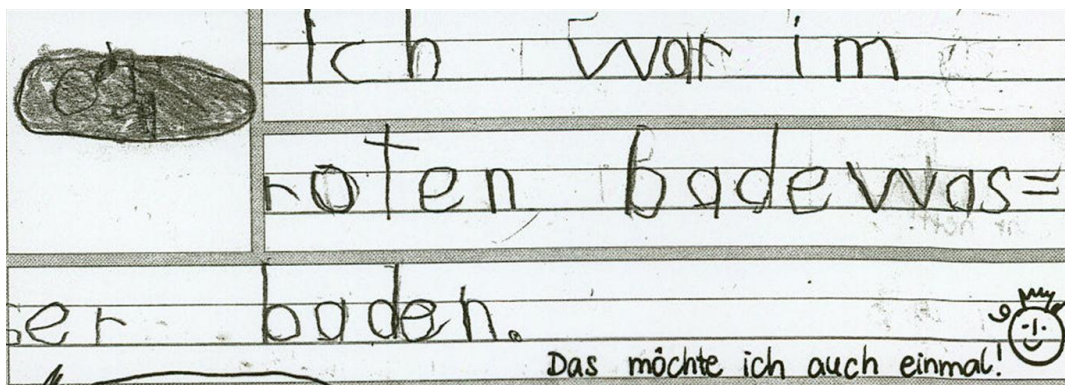 Ich war im
roten badewas=
ser baden.
Das möchte ich auch einmal!